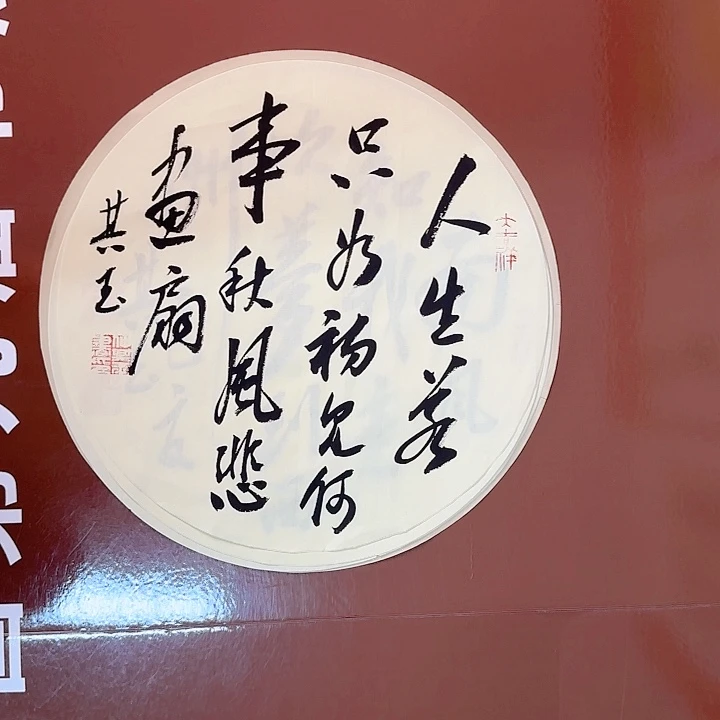 人生若
只如初见何
事秋风悲
画扇
其玉